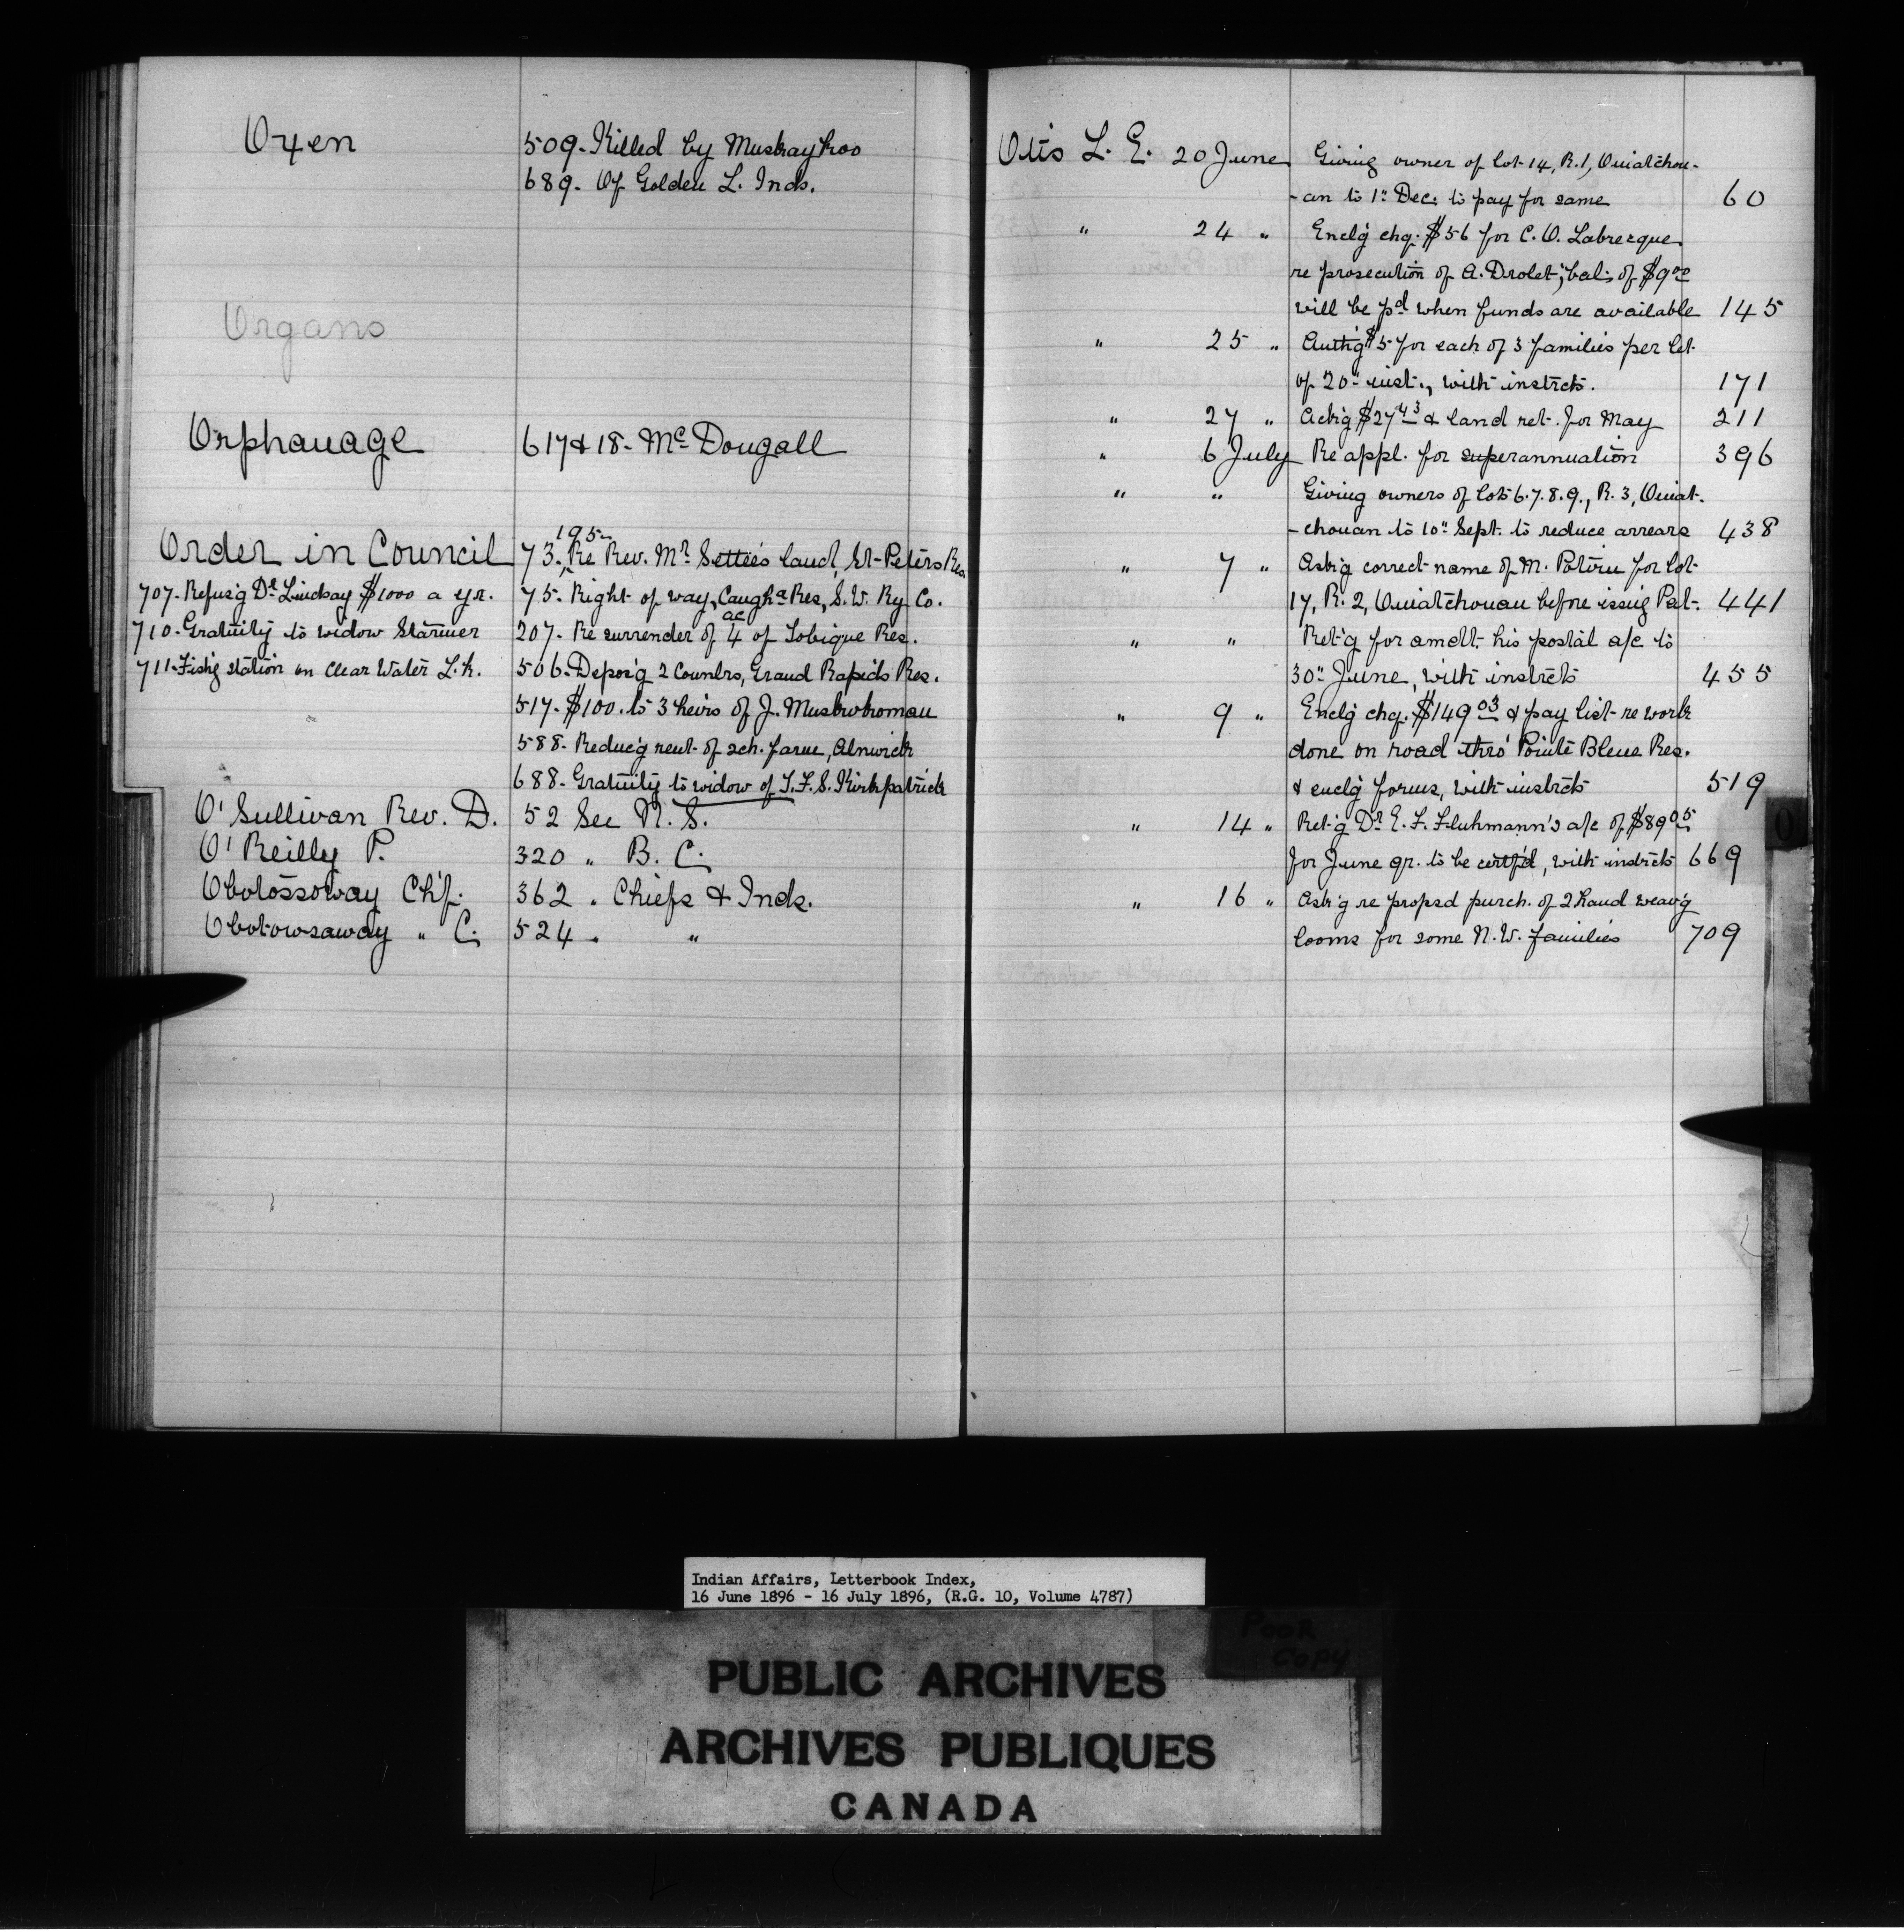 Oxen
509. Killed by Muskaykoo
689. Of Golden L. Inds.
Organs
Orphanage
617 & 18. McDougall
Order in Council
195
73. Re Rev. Mr Settee's land, St-Peters Res.
707. Refus'g Dr Lindsay $1000 a yr.
75. Right of way, Caugha Res, S.W. Ry. Co.
710. Gratuity to widow Starmer
207. Re surrender of 4 ac of Tobique Res.
711. Fish'g station on Clear Water Lk.
506. Depos'g 2 Counlrs, Grand Rapids Res.
517. $100. to 3 heirs of J. Muskokoman
588. Reduc'g rent of sch. farm, Alnwick
688. Gratuity to widow of T.F.S. Kirkpatrick
O'Sullivan Rev. D. 52 See N. S.
O'Reilly P. 320 " B. C.
Obotossoway Ch'f. 362 " Chiefs & Inds.
Obotowsaway " C. 524 " "
Otis L. E. 20 June Giving owner of lot 14, R.1, Ouiatchou-
-an to 1" Dec. to pay for same 60
" 24 " Encl'g chq. $56 for C. O. Labrecque
re prosecution of A. Drolet; bal. of $9 00
will be pd when funds are available 145
" 25 " Auth'g $5 for each of 3 families per let.
of 20" inst., with instrcts. 171
" 27 " Ack'g $27 43 & land ret. for May 211
" 6 July Re appl. for superannuation 396
" " Giving owners of lots 6.7.8.9., R. 3, Ouiat-
-chouan to 10" Sept. to reduce arrears 438
" 7 " Ask'g correct name of M. Potvin for lot
17, R. 2, Ouiatchouan before issuig Pat. 441
" " Ret'g for amdt. his postal a/c to
30" June, with instrcts 455
" 9 " Encl'g chq. $149 03 & pay list re work
done on road thro' Pointe Bleue Res.
& encl'g forms, with instrcts 519
" 14 " Ret'g Dr E. F. Fluhmann's a/c of $89 05
for June qr. to be certf'd, with instrcts 669
" 16 " Ask'g re propsd purch. of 2 hand weav'g
looms for some N.W. families 709
O
Indian Affairs, Letterbook Index,
16 June 1896 - 16 July 1896, (R.G. 10, Volume 4787)
POOR
COPY
PUBLIC ARCHIVES
ARCHIVES PUBLIQUES
CANADA